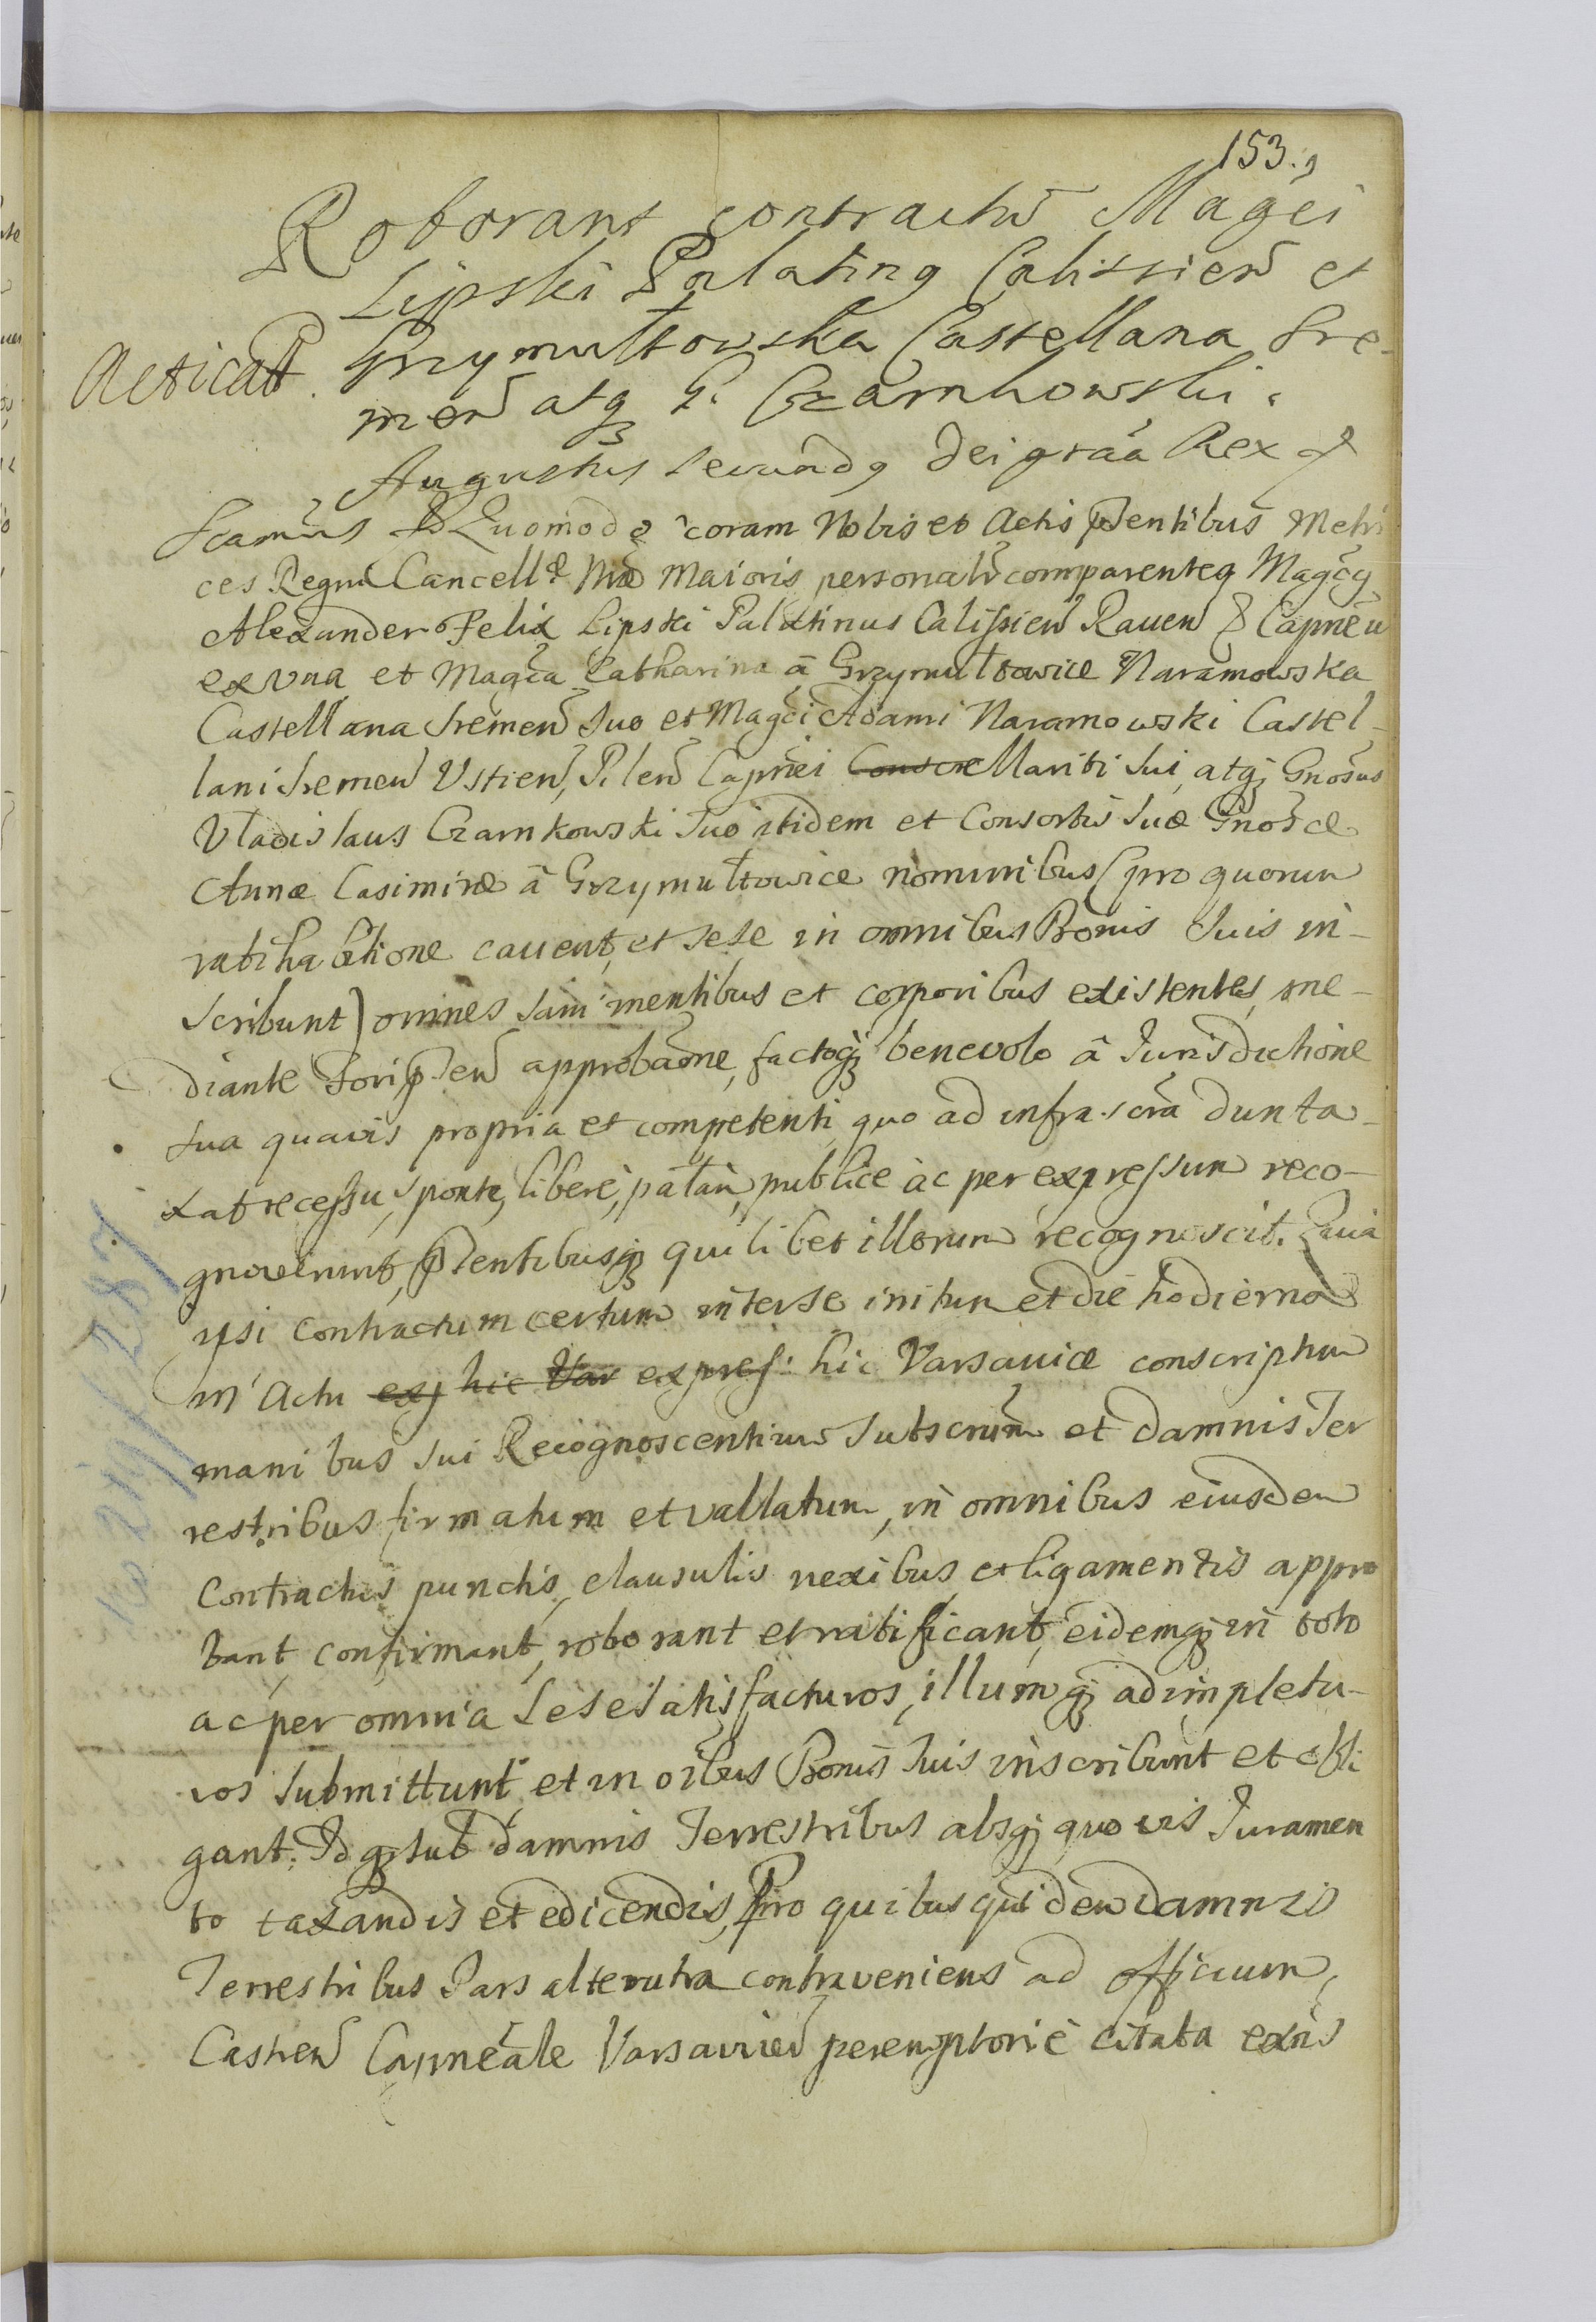 153.
Roborant contractũ Magci
Lipski Palatinq Calissień et
Acticat̃. Grzymułtowska Castellana Sre-
meń atq G. Czarnkowski.
Augustus Secundq Dei graa Rex &
Scamus Quomodo coram Nobis et Actis pñtibus Metri
ces Regni Cancell. Mrae Maioris personalr comparenteq Magcq
Alexander Felix Lipski Palatinus Calissień Raueń & Capneu
ex una et Magca Catharina â Grzymułtowice Naramowska
Castellana Sremeń Suo et Magci Adami Naramowski Castel-
lani Sremeń Ustień, Pileń Capnei Consore Mariti Sui, atq Gnosus
Vladislaus Czarnkowski Suo itidem et Consortis Suae Gnosae
Annae Casimirae â Grzymułtowice nominibus (pro quorum
ratihabitione cauent, et sese in omnibus Bonis Suis in-
scribunt) omnes sani mentibus et corporibus existentes, me-
diante Fori pñteń approbaone, factoq benevolo â Jurisdictione
sua quavis propria et competenti quo ad infrascra dunta-
xat recessu, sponte, libere, palam, publice ac per expressum reco-
gnoverunt, pñtentibusq quilibet illorum recognoscit. Quia
ipsi contractum certum inter se initum et die hodierna
in Actu exp hic Var express: hic Varsaviae conscriptum
manibus sui Recognoscentium Subscrum et damnis Ter
restribus firmatum et vallatum, in omnibus eiusdem
Contractus punctis, clausulis nexibus et ligamentis appro
bant, confirmant, roborant et ratificant, eidemq in toto
ac per omnia Sese satisfacturos, illumq adimpletu-
ros submittunt et in oibus Bonis Suis inscribunt et obli
gant. Idq sub damnis Terrestribus absq quovis Juramen
to taxandis et edicendis, Pro quibus quidem damnis
Terrestribus Pars alterutra contraveniens ad officium
Castreń Capneale Varsavień peremptorie citata exñs